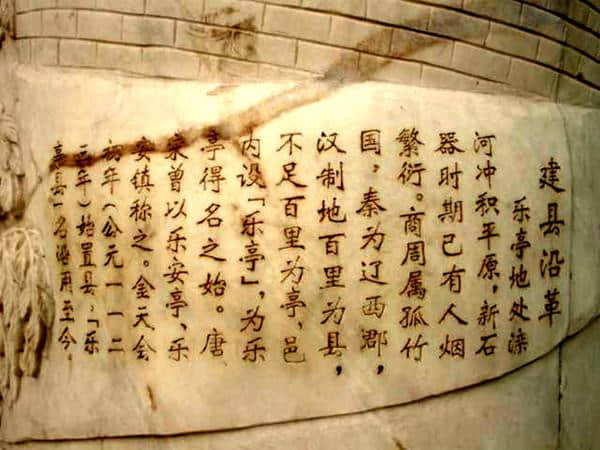 建县沿革
乐亭地处滦
河冲积平原，新石
器时期已有人烟
繁衍。商周属孤竹
国，秦为辽西郡，
汉制地百里为县，
不足百里为亭、邑
内设「乐亭」，为乐
亭得名之始。唐、
宋曾以乐安亭、乐
安镇称之。金天会
初年（公元一一二
三年）始置县，「乐
亭县」名沿用至今。